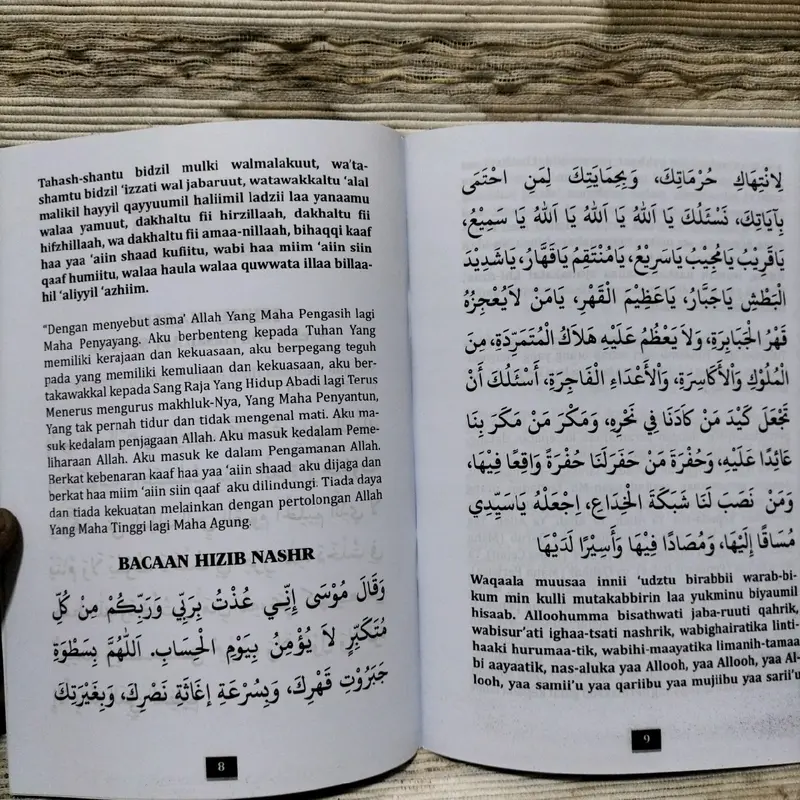 Tahash-shantu bidzil mulki walmalakuut, wa'ta-
shamtu bidzil 'izzati wal jabaruut, watawakkaltu 'alal
malikil hayyil qayyuumil haliimil ladzii laa yanaamu
walaa yamuut, dakhaltu fii hirzillaah, dakhaltu fii
hifzhillaah, wa dakhaltu fii amaa-nillaah, bihaqqi kaaf
haa yaa 'aiin shaad kufiitu, wabi haa miim 'aiin siin
qaaf humiitu, walaa haula walaa quwwata illaa billaa-
hil 'aliyyil 'azhiim.
"Dengan menyebut asma' Allah Yang Maha Pengasih lagi
Maha Penyayang. Aku berbenteng kepada Tuhan Yang
memiliki kerajaan dan kekuasaan, aku berpegang teguh
pada yang memiliki kemuliaan dan kekuasaan, aku ber-
takawakkal kepada Sang Raja Yang Hidup Abadi lagi Terus
Menerus mengurus makhluk-Nya, Yang Maha Penyantun,
Yang tak pernah tidur dan tidak mengenal mati. Aku ma-
suk kedalam penjagaan Allah. Aku masuk kedalam Peme-
liharaan Allah. Aku masuk ke dalam Pengamanan Allah.
Berkat kebenaran kaaf haa yaa 'aiin shaad aku dijaga dan
berkat haa miim 'aiin siin qaaf aku dilindungi. Tiada daya
dan tiada kekuatan melainkan dengan pertolongan Allah
Yang Maha Tinggi lagi Maha Agung.
BACAAN HIZIB NASHR
وَقَالَ مُوْسَى إِنِّي عُذْتُ بِرَبِّي وَرَبِّكُمْ مِنْ كُلِّ
مُتَكَبِّرٍ لاَ يُؤْمِنُ بِيَوْمِ الْحِسَابِ. اَللهُمَّ بِسَطْوَةِ
جَبَرُوْتِ قَهْرِكَ، وَبِسُرْعَةِ إِغَاثَةِ نَصْرِكَ، وَبِغَيْرَتِكَ
8
لِانْتِهَاكِ حُرْمَاتِكَ، وَبِحِمَايَتِكَ لِمَنِ احْتَمَى
بِآيَاتِكَ، نَسْئَلُكَ يَا اَللهُ يَا اَللهُ يَا اَللهُ يَا سَمِيْعُ،
يَاقَرِيْبُ يَامُجِيْبُ يَاسَرِيْعُ، يَامُنْتَقِمُ يَاقَهَّارُ، يَاشَدِيْدَ
الْبَطْشِ يَاجَبَّارُ، يَاعَظِيْمَ الْقَهْرِ، يَامَنْ لاَيُعْجِزُهُ
قَهْرُ الْجَبَابِرَةِ، وَلاَ يَعْظُمُ عَلَيْهِ هَلاَكُ الْمُتَمَرِّدَةِ، مِنَ
الْمُلُوْكِ وَالْأَكَاسِرَةِ، وَاْلأَعْدَاءِ الْفَاجِرَةِ، أَسْئَلُكَ أَنْ
تَجْعَلَ كَيْدَ مَنْ كَادَنَا فِي نَحْرِهِ، وَمَكْرَ مَنْ مَكَرَ بِنَا
عَائِدًا عَلَيْهِ، وَحُفْرَةَ مَنْ حَفَرَلَنَا حُفْرَةً وَاقِعًا فِيْهَا،
وَمَنْ نَصَبَ لَنَا شَبَكَةَ الْخِدَاعِ، اِجْعَلْهُ يَاسَيِّدِي
مُسَاقًا إِلَيْهَا، وَمُصَادًا فِيْهَا وَأَسِيْرًا لَدَيْهَا
Waqaala muusaa innii 'udztu birabbii warab-bi-
kum min kulli mutakabbirin laa yukminu biyaumil
hisaab. Alloohumma bisathwati jaba-ruuti qahrik,
wabisur'ati ighaa-tsati nashrik, wabighairatika linti-
haaki hurumaa-tik, wabihi-maayatika limanih-tamaa
bi aayaatik, nas-aluka yaa Allooh, yaa Allooh, yaa Al-
looh, yaa samii'u yaa qariibu yaa mujiibu yaa sarii'u
9